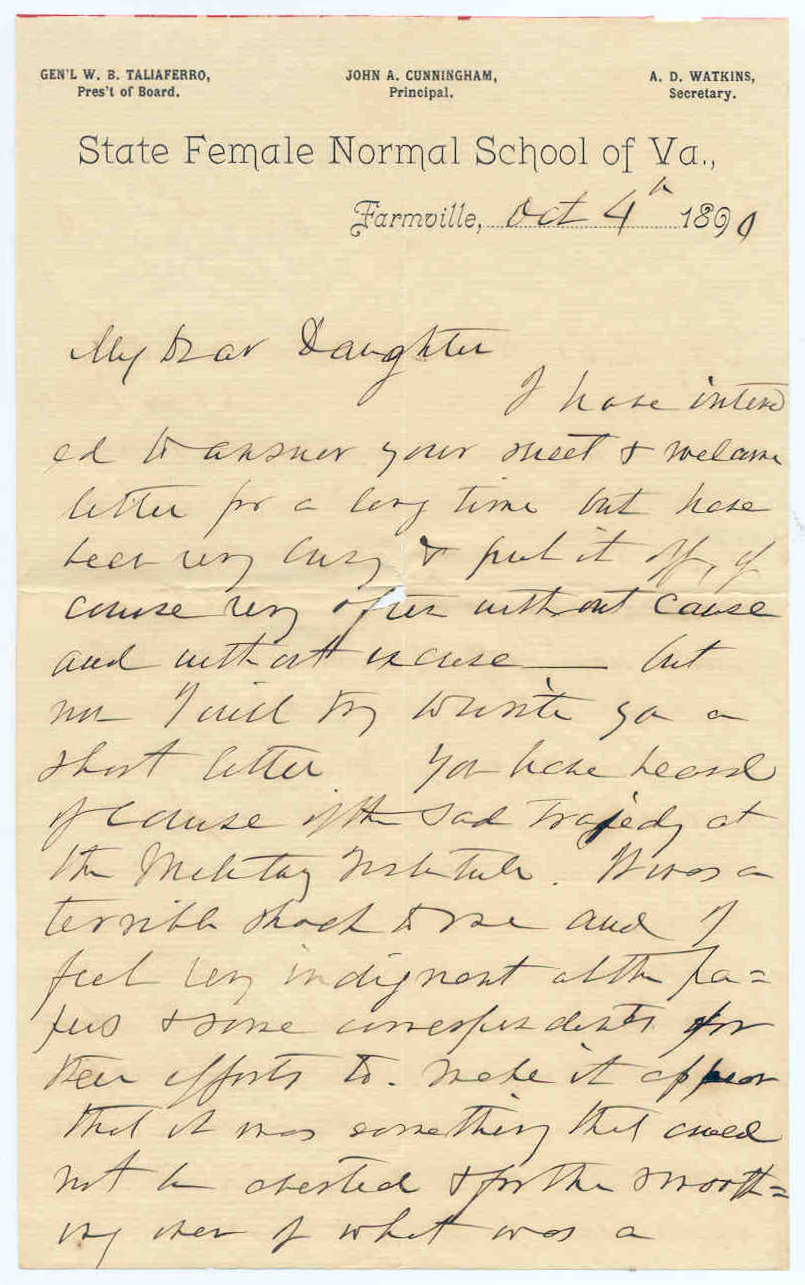 GEN'L W. B. TALIAFERRO,
Pres't of Board.
JOHN A. CUNNINGHAM,
Principal.
A. D. WATKINS,
Secretary.
State Female Normal School of Va.,
Farmville, Oct 4th 1890
My Dear Daughter
I have intend
ed to answer your sweet & welcome
letter for a long time but have
been very busy & put it off, of
course very often without cause
and without excuse — but
now I will try to write you a
short letter You have heard
of course of the sad trajedy at
the Military Institute. It was a
terrible shock to me and I
feel very indignant at the pa=
pers & some correspondents for
their efforts to. make it appear
that it was something that could
not be averted & for the smooth=
ing over of what was a